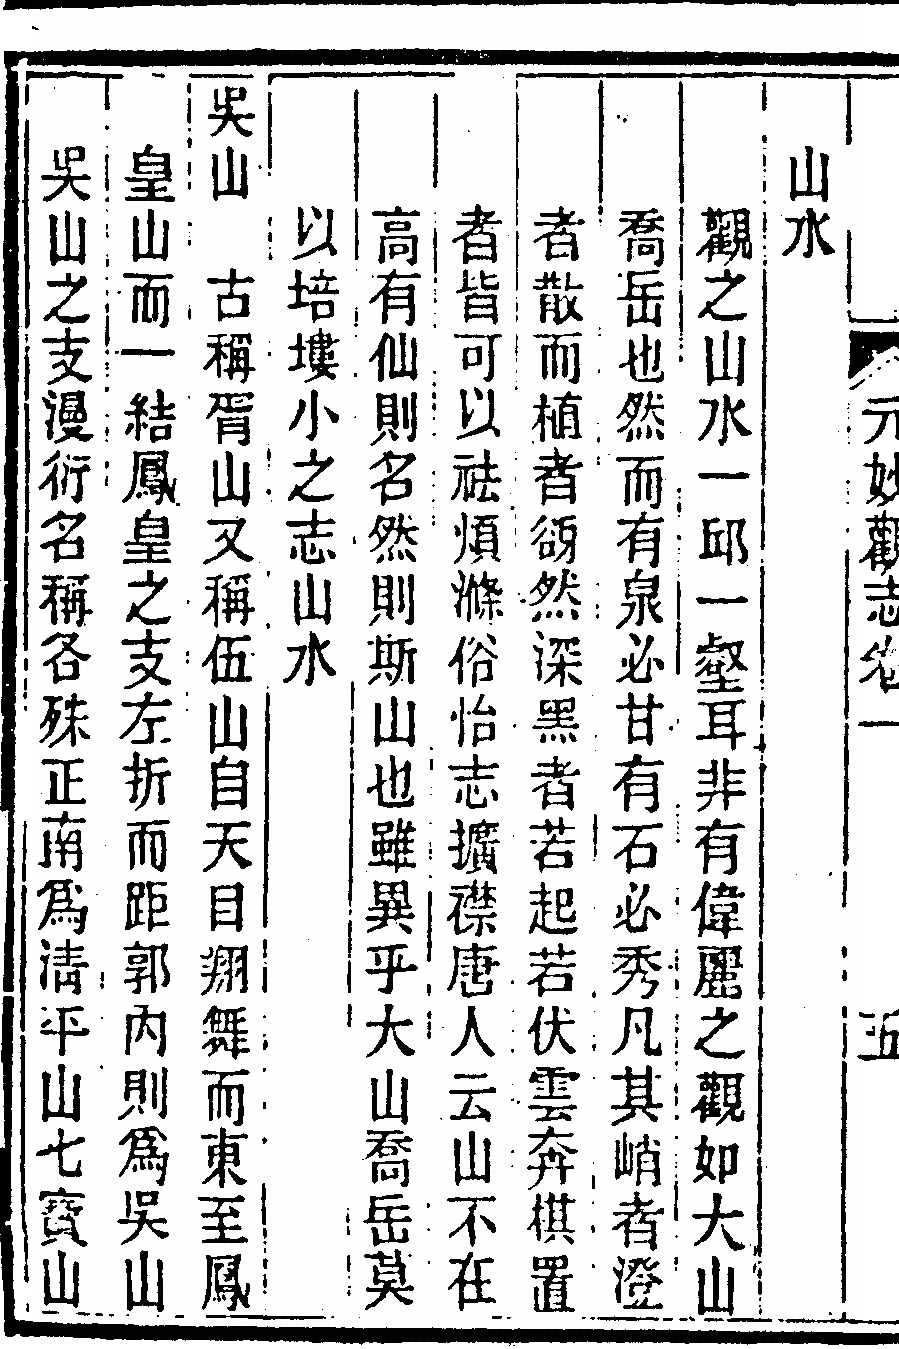 元妙觀志卷一 五
山水
觀之山水一邱一壑耳非有偉麗之觀如大山
喬岳也然而有泉必甘有石必秀凡其峭者澄
者散而植者頟然深黑者若起若伏雲奔棋置
者皆可以祛煩滌俗怡志擴襟唐人云山不在
高有仙則名然則斯山也雖異乎大山喬岳莫
以培塿小之志山水
吳山 古稱胥山又稱伍山自天目翔舞而東至鳳
皇山而一結鳳皇之支左折而距郭內則爲吳山
吳山之支漫衍名稱各殊正南爲淸平山七寶山